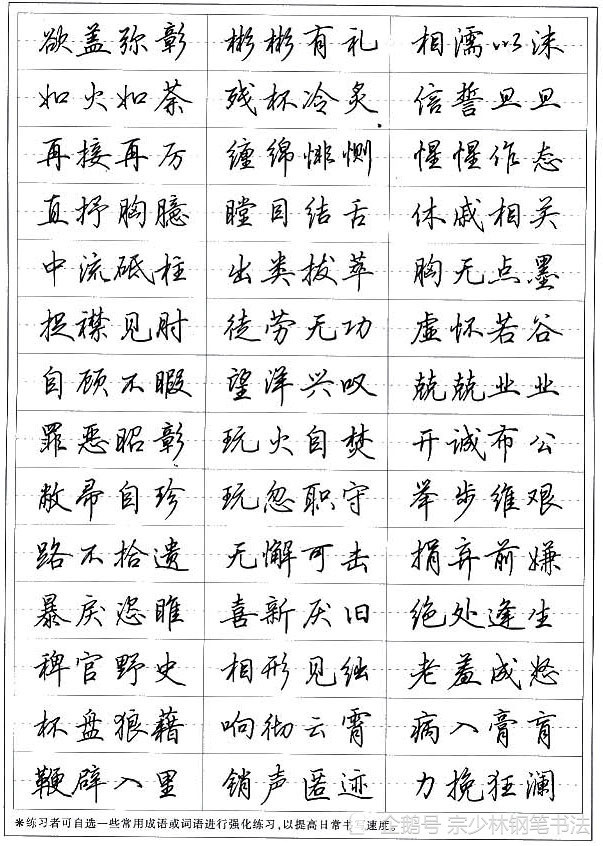 欲盖弥彰 彬彬有礼 相濡以沫
如火如荼 残杯冷炙 信誓旦旦
再接再厉 缠绵悱恻 惺惺作态
直抒胸臆 瞠目结舌 休戚相关
中流砥柱 出类拔萃 胸无点墨
捉襟见肘 徒劳无功 虚怀若谷
自顾不暇 望洋兴叹 兢兢业业
罪恶昭彰 玩火自焚 开诚布公
敝帚自珍 玩忽职守 举步维艰
路不拾遗 无懈可击 捐弃前嫌
暴戾恣睢 喜新厌旧 绝处逢生
稗官野史 相形见绌 老羞成怒
杯盘狼藉 响彻云霄 病入膏肓
鞭辟入里 销声匿迹 力挽狂澜
※练习者可自选一些常用成语或词语进行强化练习,以提高日常书写速度。
企鹅号 宗少林钢笔书法